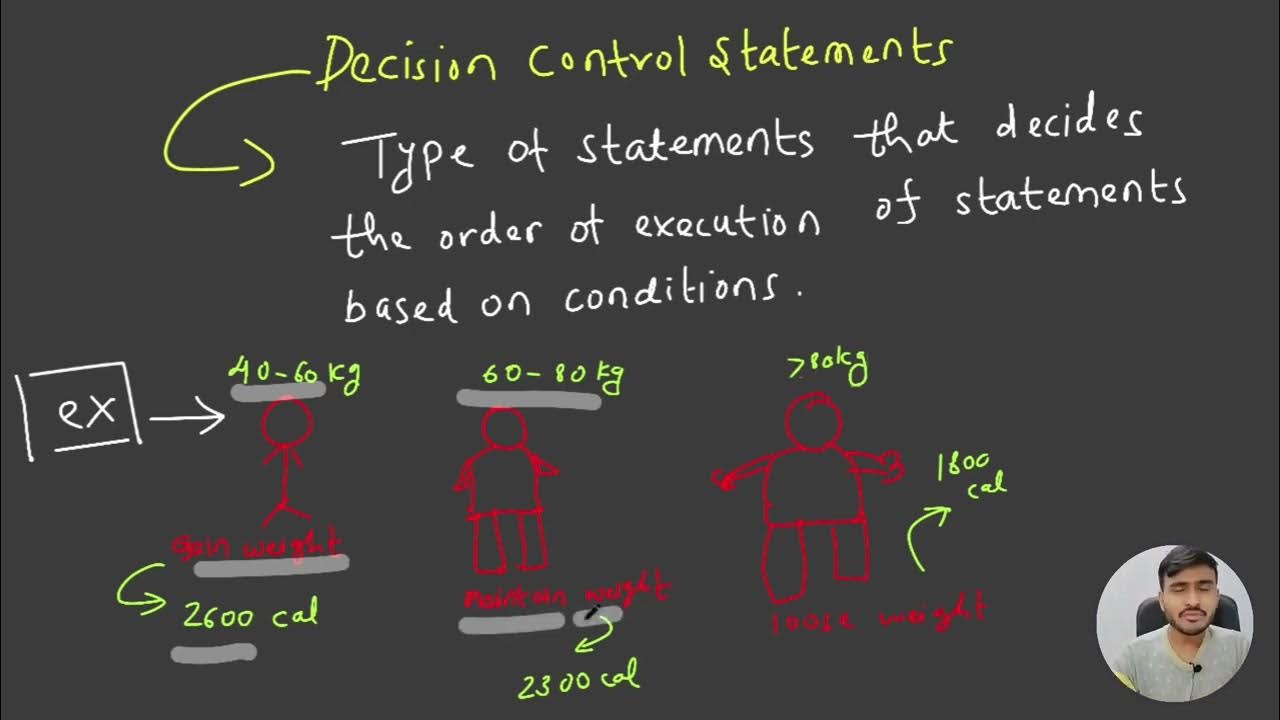 Decision Control Statements
Type of statements that decides
the order of execution of statements
based on conditions.
ex
40-60 kg
60-80 kg
>80kg
1800
cal
Gain weight
2600 cal
Maintain weight
2300 cal
loose weight